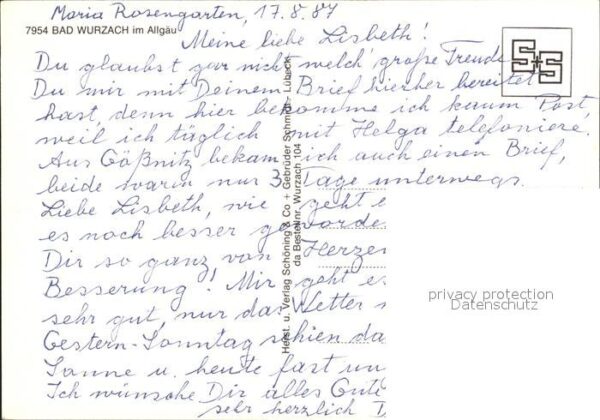 Maria Rosengarten, 17.8.87
7954 BAD WURZACH im Allgäu
Meine liebe Lisbeth!
Du glaubst gar nicht welch' große Freude
Du mir mit Deinem Brief hierher bereitet
hast, denn hier bekomme ich kaum Post,
weil ich täglich mit Helga telefoniere.
Aus Gößnitz bekam ich auch einen Brief,
beide waren nur 3 Tage unterwegs.
Liebe Lisbeth, wie geht e
es noch besser geworde
Dir so ganz von Herzen
Besserung! Mir geht es
sehr gut, nur das Wetter
Gestern-Sonntag schien da
Sonne u. heute fast un
Ich wünsche Dir alles Gute
sehr herzlich D
Herst. u. Verlag Schöning & Co + Gebrüder Schmidt - Lübeck
da Bestellnr. Wurzach 104
S+S
privacy protection
Datenschutz